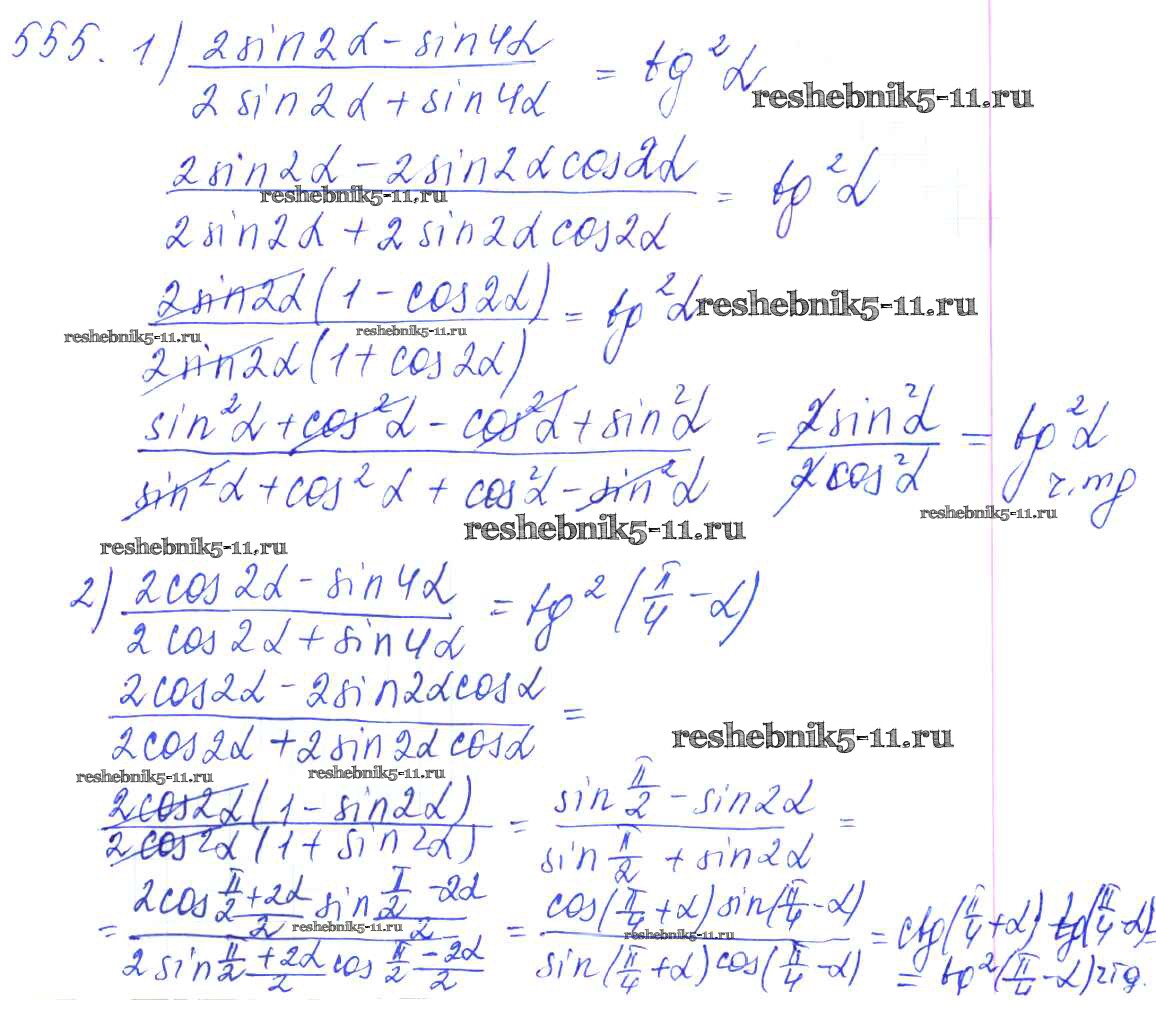 555. 1) (2sin2α - sin4α)/(2sin2α + sin4α) = tg²α
reshebnik5-11.ru
(2sin2α - 2sin2α cos2α)/(2sin2α + 2sin2α cos2α) = tg²α
reshebnik5-11.ru
(2sin2α(1 - cos2α))/(2sin2α(1 + cos2α)) = tg²α
reshebnik5-11.ru
reshebnik5-11.ru reshebnik5-11.ru
(sin²α + cos²α - cos²α + sin²α)/(sin²α + cos²α + cos²α - sin²α) = (2sin²α)/(2cos²α) = tg²α
reshebnik5-11.ru
reshebnik5-11.ru
reshebnik5-11.ru
2) (2cos2α - sin4α)/(2cos2α + sin4α) = tg²(π/4 - α)
(2cos2α - 2sin2αcosα)/(2cos2α + 2sin2αcosα) =
reshebnik5-11.ru
reshebnik5-11.ru reshebnik5-11.ru
(2cos2α(1 - sin2α))/(2cos2α(1 + sin2α)) = (sin π/2 - sin2α)/(sin π/2 + sin2α) =
= (2cos (π/2 + 2α)/2 sin (π/2 - 2α)/2)/(2sin (π/2 + 2α)/2 cos (π/2 - 2α)/2) = (cos(π/4 + α) sin(π/4 - α))/(sin(π/4 + α) cos(π/4 - α)) = ctg(π/4 + α) tg(π/4 - α) =
reshebnik5-11.ru reshebnik5-11.ru
= tg²(π/4 - α)